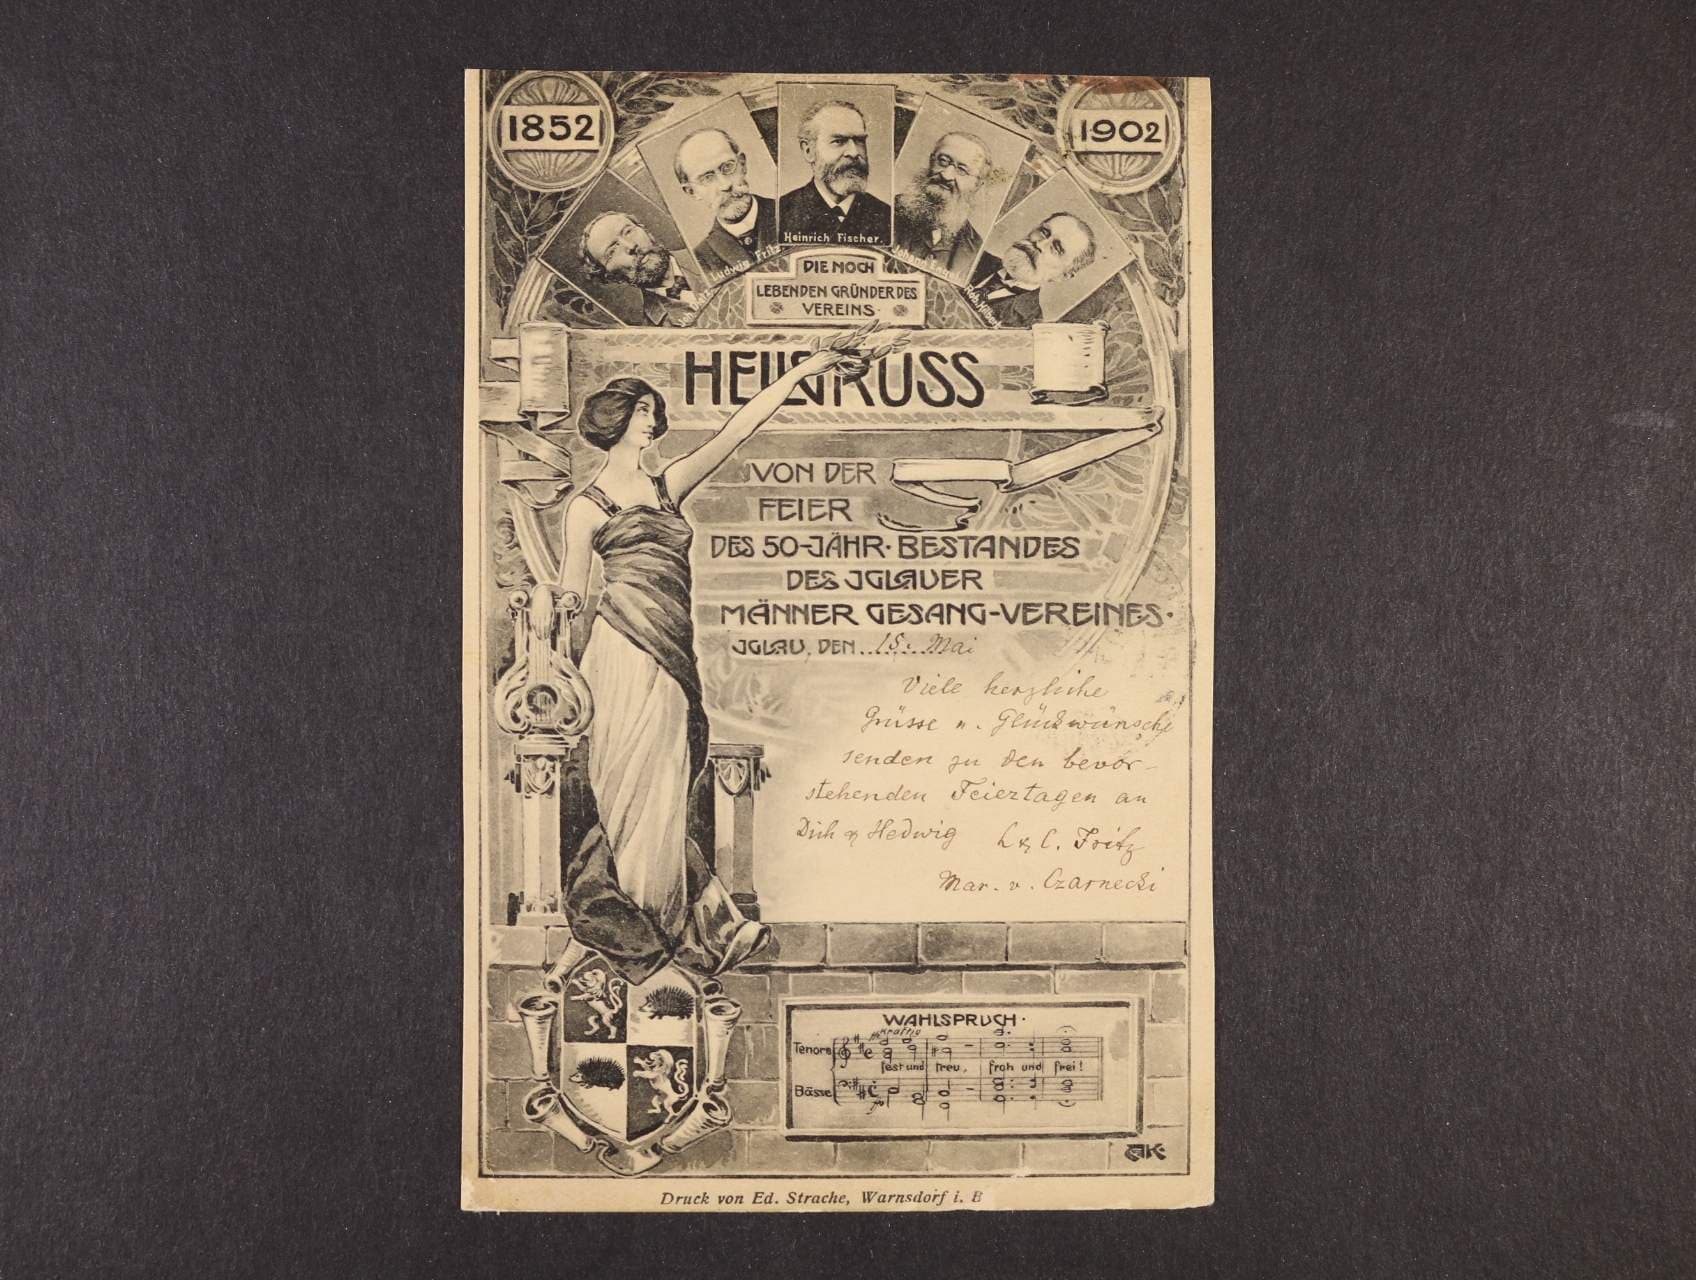 1852
1902
Ludwig Fritz
Heinrich Fischer.
Johann
DIE NOCH
LEBENDEN GRÜNDER DES
VEREINS.
HEILGRUSS
VON DER
FEIER
DES 50-JÄHR. BESTANDES
DES IGLAUER
MÄNNER GESANG-VEREINES.
IGLAU, DEN 15. Mai
Viele herzliche
Grüsse u. Glückwünsche
senden zu den bevor-
stehenden Feiertagen an
Dich & Hedwig L & C. Fritz
Mar. v. Czarnecki
WAHLSPRUCH.
kräftig
Tenore
fest und treu, froh und frei!
Bässe
Druck von Ed. Strache, Warnsdorf i. B